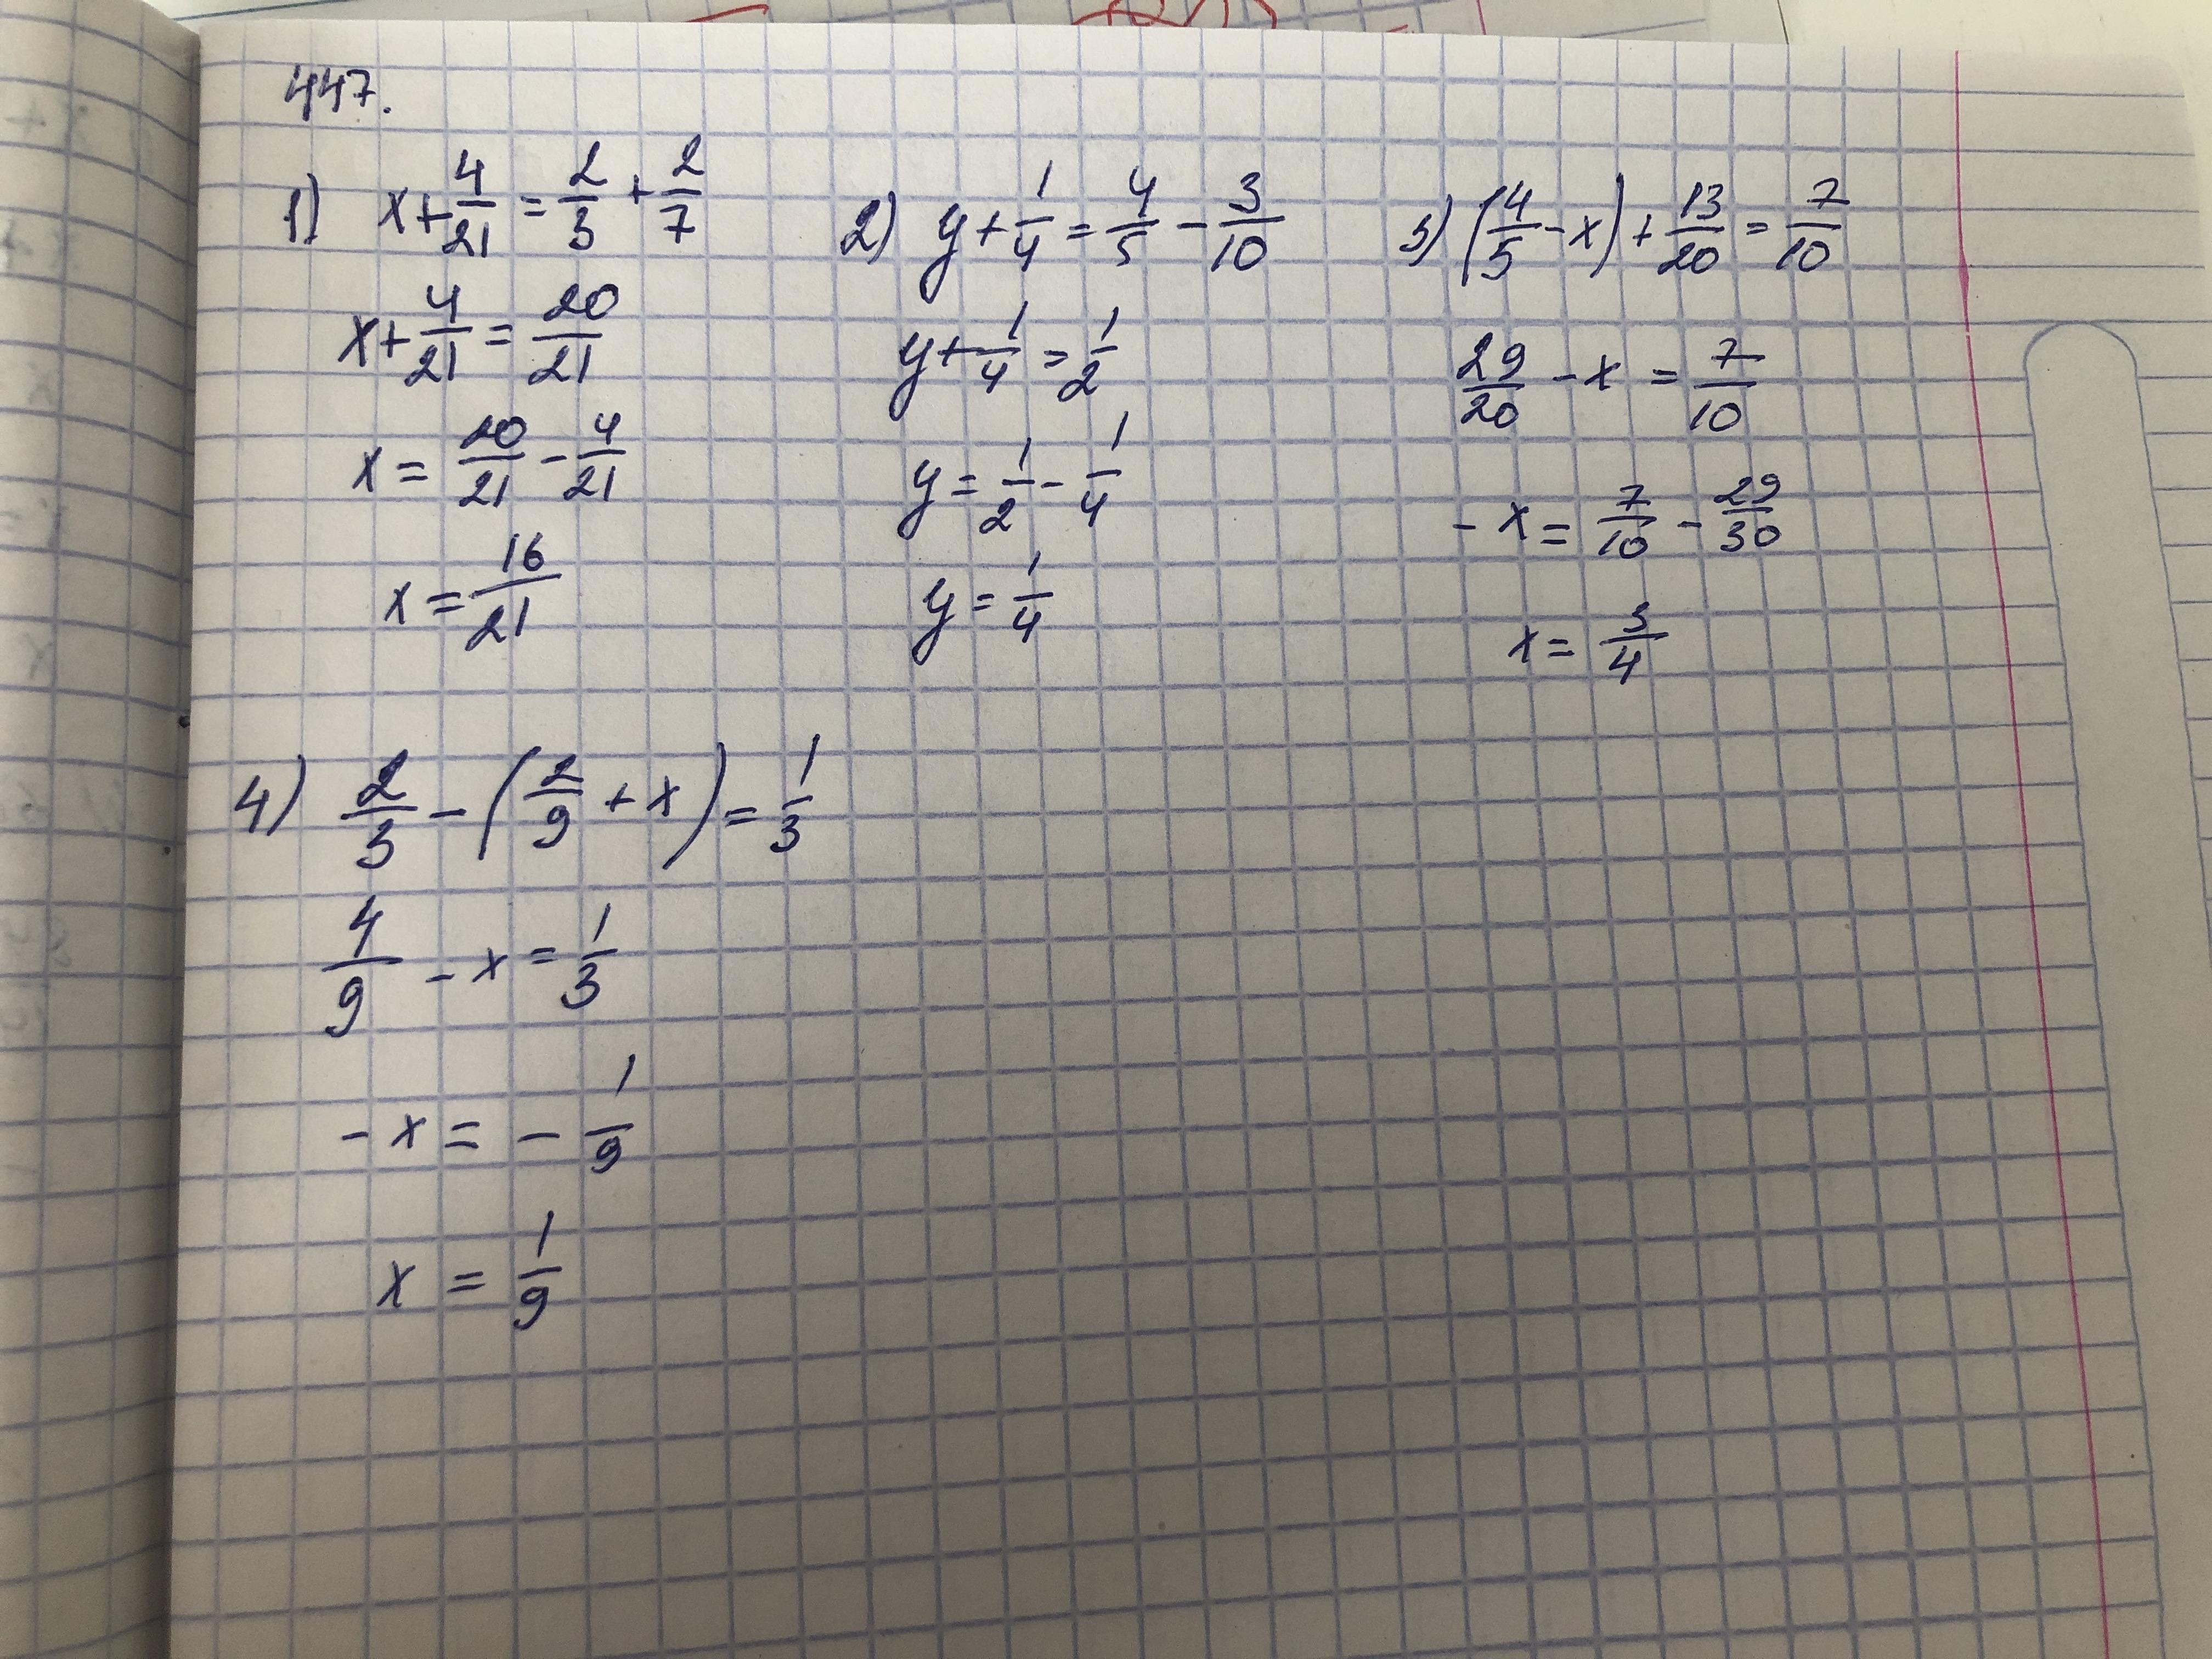 447.
1) x+4/21=2/3+2/7
x+4/21=20/21
x=20/21-4/21
x=16/21
2) y+1/4=4/5-3/10
y+1/4=1/2
y=1/2-1/4
y=1/4
3) (4/5-x)+13/20=7/10
29/20-x=7/10
-x=7/10-29/30
x=3/4
4) 2/3-(2/9+x)=1/3
4/9-x=1/3
-x=-1/9
x=1/9